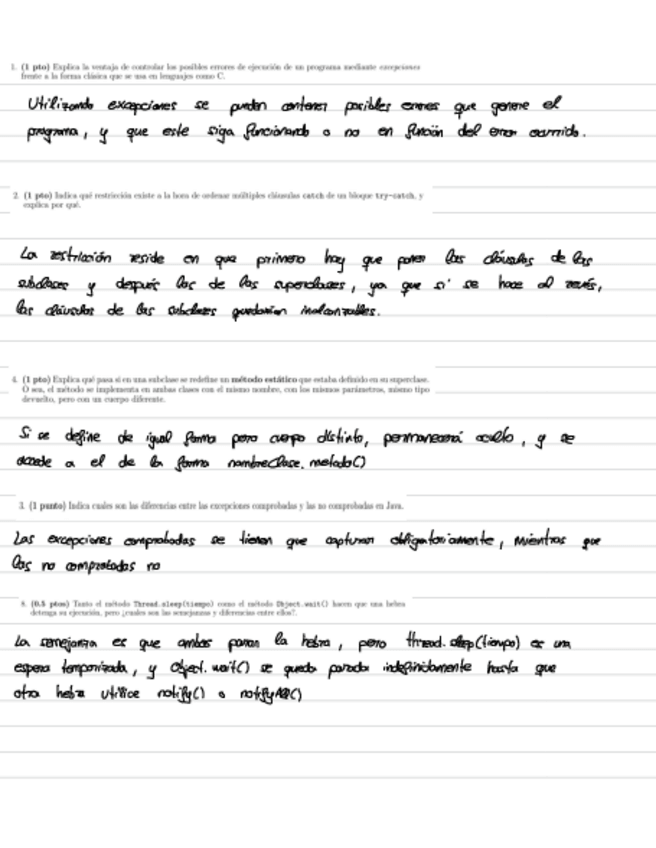 1. (1 pto) Explica la ventaja de controlar los posibles errores de ejecución de un programa mediante excepciones
frente a la forma clásica que se usa en lenguajes como C.
Utilizando excepciones se pueden contener posibles errores que genere el
programa, y que este siga funcionando o no en función del error ocurrido.
2. (1 pto) Indica qué restricción existe a la hora de ordenar múltiples cláusulas catch de un bloque try-catch, y
explica por qué.
La restricción reside en que primero hay que poner las cláusulas de las
subclases y después las de las superclases, ya que si se hace al revés,
las cláusulas de las subclases quedarían inalcanzables.
4. (1 pto) Explica qué pasa si en una subclase se redefine un método estático que estaba definido en su superclase.
O sea, el método se implementa en ambas clases con el mismo nombre, con los mismos parámetros, mismo tipo
devuelto, pero con un cuerpo diferente.
Si se define de igual forma pero cuerpo distinto, permanecerá oculto, y se
accede a el de la forma nombreClase.metodo()
3. (1 punto) Indica cuales son las diferencias entre las excepciones comprobadas y las no comprobadas en Java.
Las excepciones comprobadas se tienen que capturar obligatoriamente, mientras que
las no comprobadas no
(0.5 ptos) Tanto el método Thread.sleep(tiempo) como el método Object.wait() hacen que una hebra
detenga su ejecución, pero ¿cuales son las semejanzas y diferencias entre ellos?.
La semejanza es que ambos paran la hebra, pero thread.sleep(tiempo) es una
espera temporizada, y Object.wait() se queda parada indefinidamente hasta que
otra hebra utilice notify() o notifyAll()